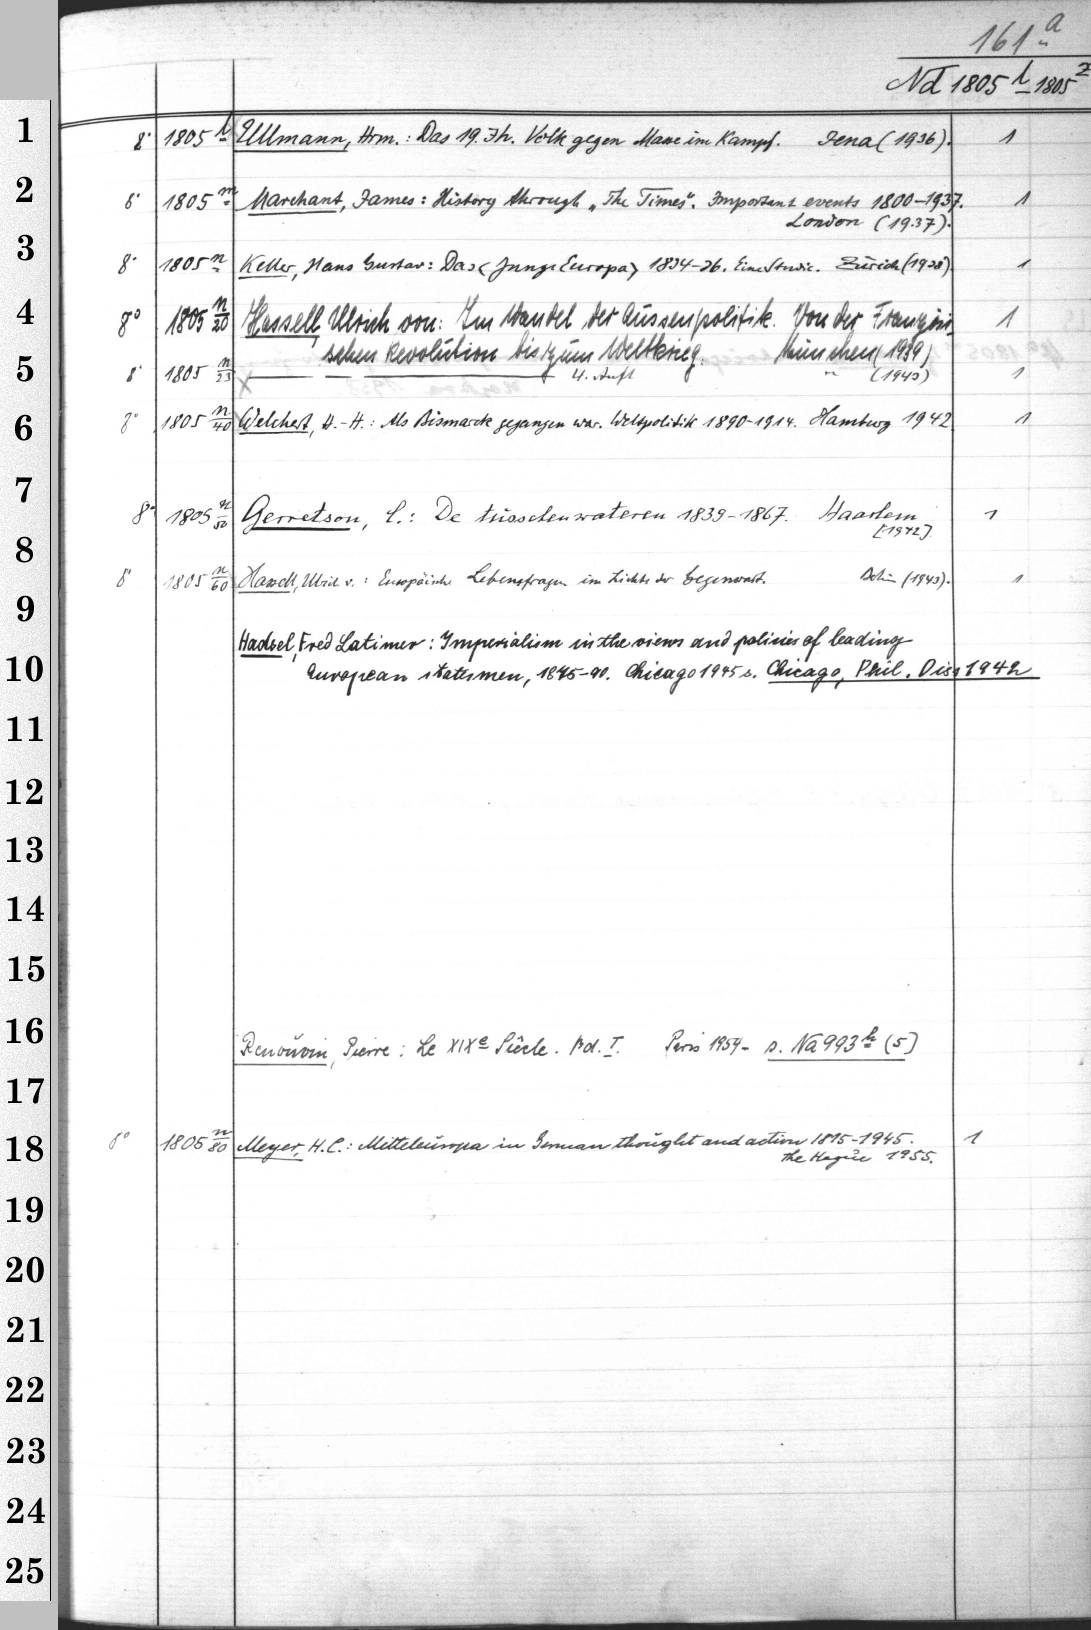 161a
Nd 1805 l - 1805 z
1
8° 1805 l Ullmann, Hrm.: Das 19. Jh. Volk gegen Masse im Kampf. Jena (1936). 1
2
8° 1805 m Marchant, James: History through „The Times". Important events 1800–1937. 1
London (1937).
3
8° 1805 n Keller, Hans Gustav: Das <Junge Europa> 1834–36. Eine Studie. Zürich (1938) 1
4
8° 1805 n/20 Hassell, Ulrich von: Im Wandel der Aussenpolitik. Von der Französi 1
schen Revolution bis zum Weltkrieg. München (1939)
5
8° 1805 n/23 — 4. Aufl. " (1943) 1
6
8° 1805 n/40 Welchert, H.-H.: Als Bismarck gegangen war. Weltpolitik 1890–1914. Hamburg 1942 1
7
8° 1805 n/50 Gerretson, C.: De tusschenwateren 1839–1867. Haarlem 1
[1942]
8
8° 1805 n/60 Hassell, Ulrich v.: Europäische Lebensfragen im Lichte der Gegenwart. Berlin (1943). 1
9
Hadsel, Fred Latimer: Imperialism in the views and policies of leading
10
European statesmen, 1875–90. Chicago 1945 s. Chicago, Phil. Diss 1942
11
12
13
14
15
16
Renouvin, Pierre: Le XIXe Siècle. Bd. I. Paris 1954– s. Na 993 h (5)
17
8° 1805 n/80 Meyer, H.C.: Mitteleuropa in German thought and action 1815–1945. 1
18
the Hague 1955.
19
20
21
22
23
24
25